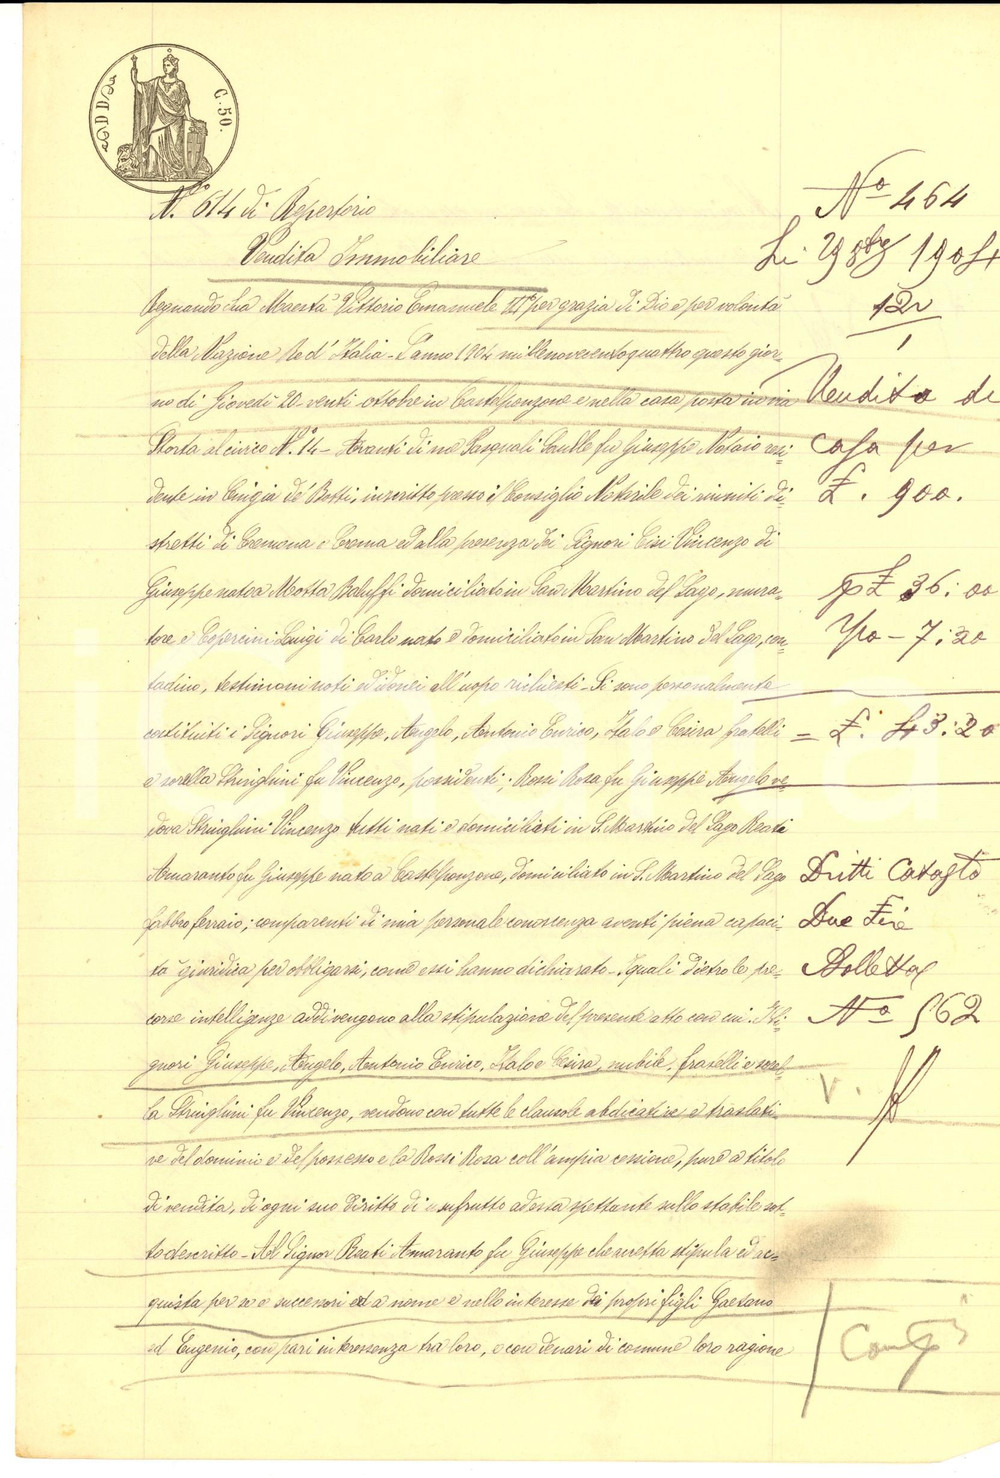 D D
C. 50.
N.° 614 di Repertorio
Vendita Immobiliare
Regnando Sua Maestà Vittorio Emanuele III° per grazia di Dio e per volontà
della Nazione Re d'Italia - L'anno 1904 millenovecentoquattro questo gior-
no di Giovedì 20 - venti ottobre in Castelponzone e nella casa posta in via
Storta al civico N.° 14 - Avanti di me Pasquali Saulle fu Giuseppe Notaio resi-
dente in Cingia de' Botti, inscritto presso il Consiglio Notarile dei riuniti di-
stretti di Cremona e Crema ed alla presenza dei Signori Cisi Vincenzo di
Giuseppe nato a Motta Baluffi domiciliato in San Martino del Lago, mura-
tore e Luigi di Carlo nato e domiciliato in San Martino del Lago, con-
tadino, testimoni noti ed idonei all'uopo richiesti - Si sono personalmente
costituiti i Signori Giuseppe, Angelo, Antonio Enrico, Italo e Cesira fratelli
e sorella Stringhini fu Vincenzo, possidenti; Rossi Rosa fu Giuseppe Angelo ve-
dova Stringhini Vincenzo tutti nati e domiciliati in S. Martino del Lago Reati
Amaranto fu Giuseppe nato a Castelponzone, domiciliato in S. Martino del Lago
fabbro ferraio; comparenti di mia personale conoscenza aventi piena capaci-
tà giuridica per obbligarsi, come essi hanno dichiarato - I quali dietro le pre-
corse intelligenze addivengono alla stipulazione del presente atto con cui. I Si-
gnori Giuseppe, Angelo, Antonio Enrico, Italo e Cesira, nubile, fratelli e sorel-
la Stringhini fu Vincenzo, vendono con tutte le clausole abdicative e traslati-
ve del dominio e del possesso e la Rossi Rosa coll'ampia cessione, pure a titolo
di vendita, di ogni suo diritto di usufrutto ad essa spettante sullo stabile sot-
to descritto - Al Signor Reati Amaranto fu Giuseppe che accetta stipula ed ac-
quista per se e successori ed a nome e nello interesse dei propri figli Gaetano
ed Eugenio, con pari interessenza tra loro, e con denari di comune loro ragione
N° 464
Li 29 8bre 1904
121
1
Vendita di
casa per
£. 900.
p £ 36:00
- 7:20
= £. 43:20
Dritti Catasto
Due Lire
Bolletta
N° 562
V.